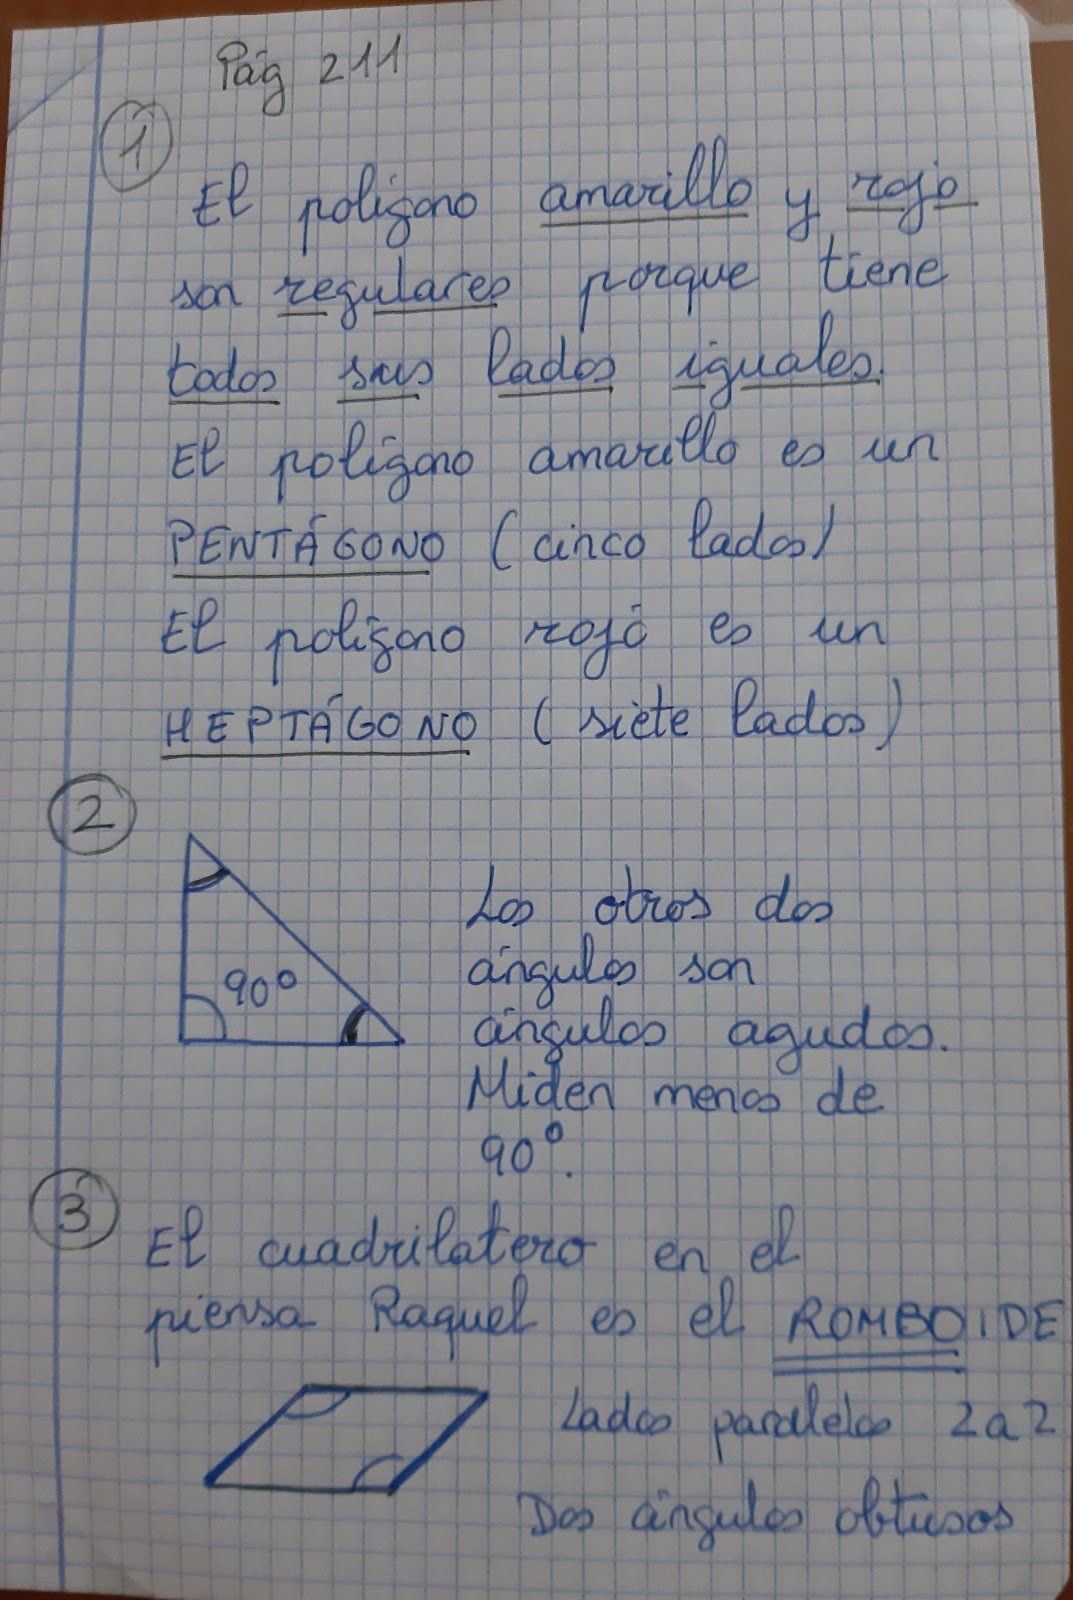 Pág 211
1
El polígono amarillo y rojo
son regulares porque tiene
todos sus lados iguales.
El polígono amarillo es un
PENTÁGONO (cinco lados)
El polígono rojo es un
HEPTÁGONO (siete lados)
2
90°
Los otros dos
ángulos son
ángulos agudos.
Miden menos de
90°.
3
El cuadrilatero en el
piensa Raquel es el ROMBOIDE
Lados paralelos 2a2
Dos ángulos obtusos